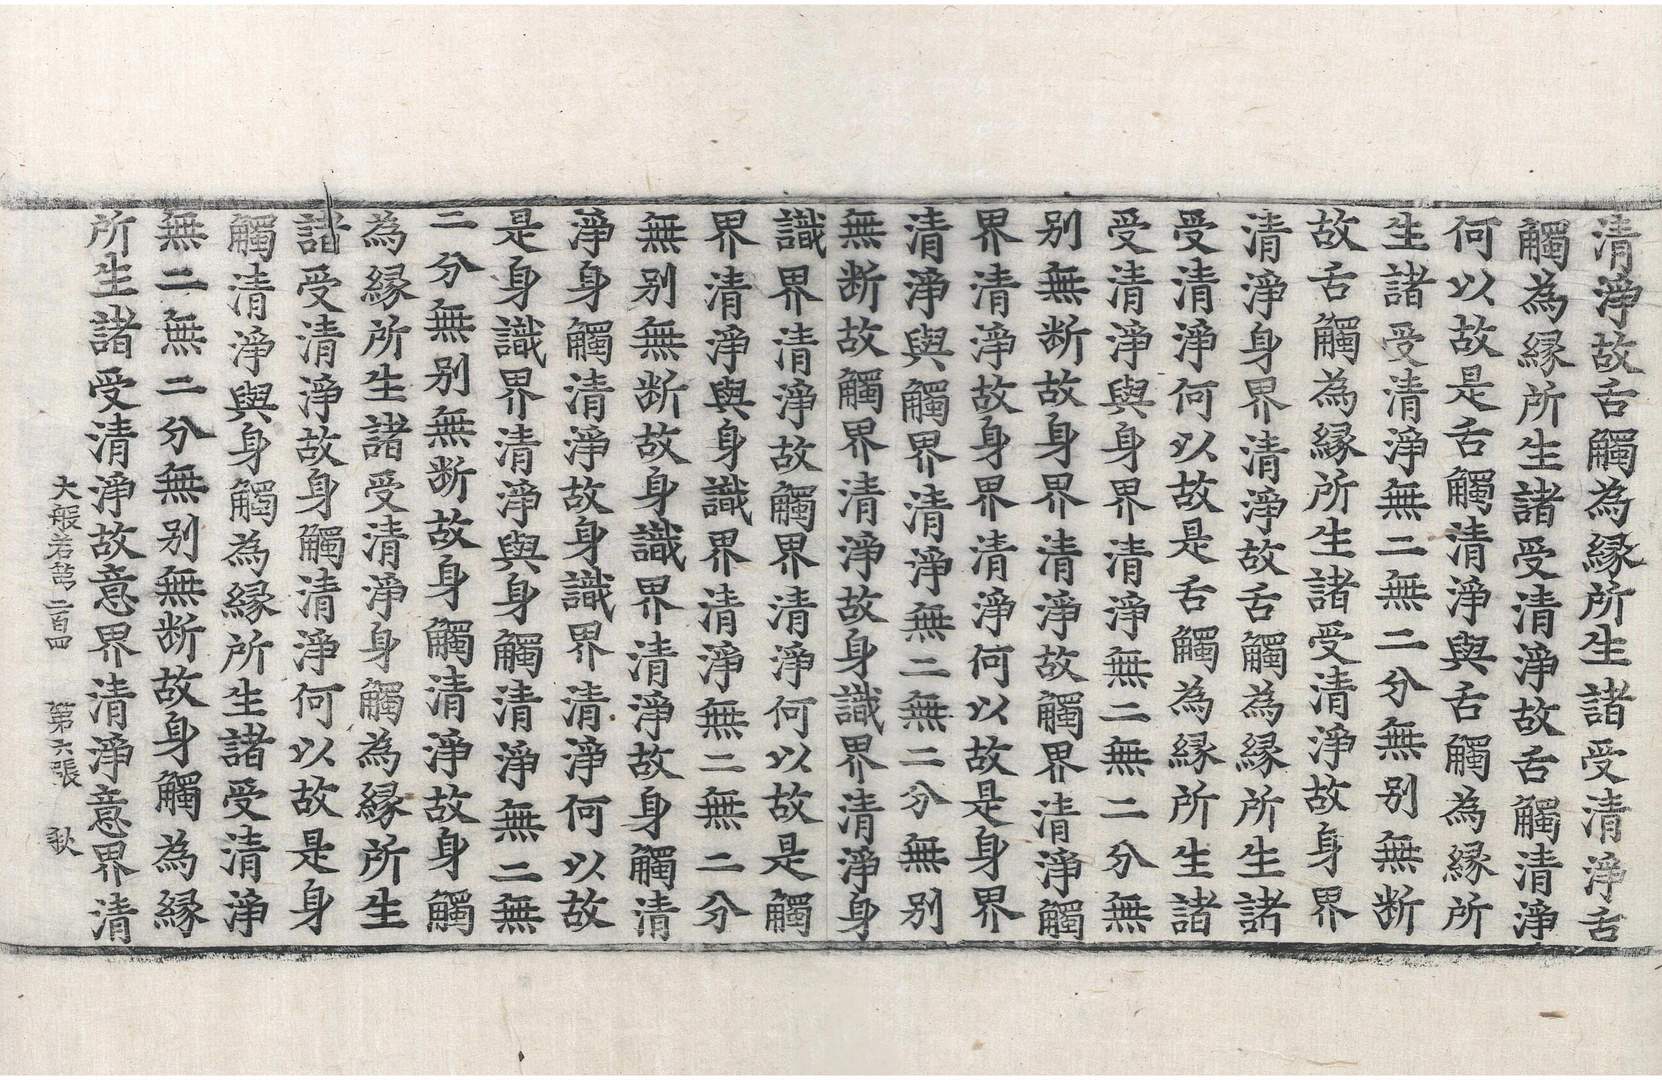 清淨故舌觸為縁所生諸受清淨舌
觸為縁所生諸受清淨故舌觸清淨
何以故是舌觸清淨與舌觸為縁所
生諸受清淨無二無二分無别無断
故舌觸為縁所生諸受清淨故身界
清淨身界清淨故舌觸為縁所生諸
受清淨何以故是舌觸為縁所生諸
受清淨與身界清淨無二無二分無
别無断故身界清淨故觸界清淨觸
界清淨故身界清淨何以故是身界
清淨與觸界清淨無二無二分無别
無断故觸界清淨故身識界清淨身
識界清淨故觸界清淨何以故是觸
界清淨與身識界清淨無二無二分
無别無断故身識界清淨故身觸清
淨身觸清淨故身識界清淨何以故
是身識界清淨與身觸清淨無二無
二分無别無断故身觸清淨故身觸
為縁所生諸受清淨身觸為縁所生
諸受清淨故身觸清淨何以故是身
觸清淨與身觸為縁所生諸受清淨
無二無二分無别無断故身觸為縁
所生諸受清淨故意界清淨意界清
大般若第二百四 第六張 秋